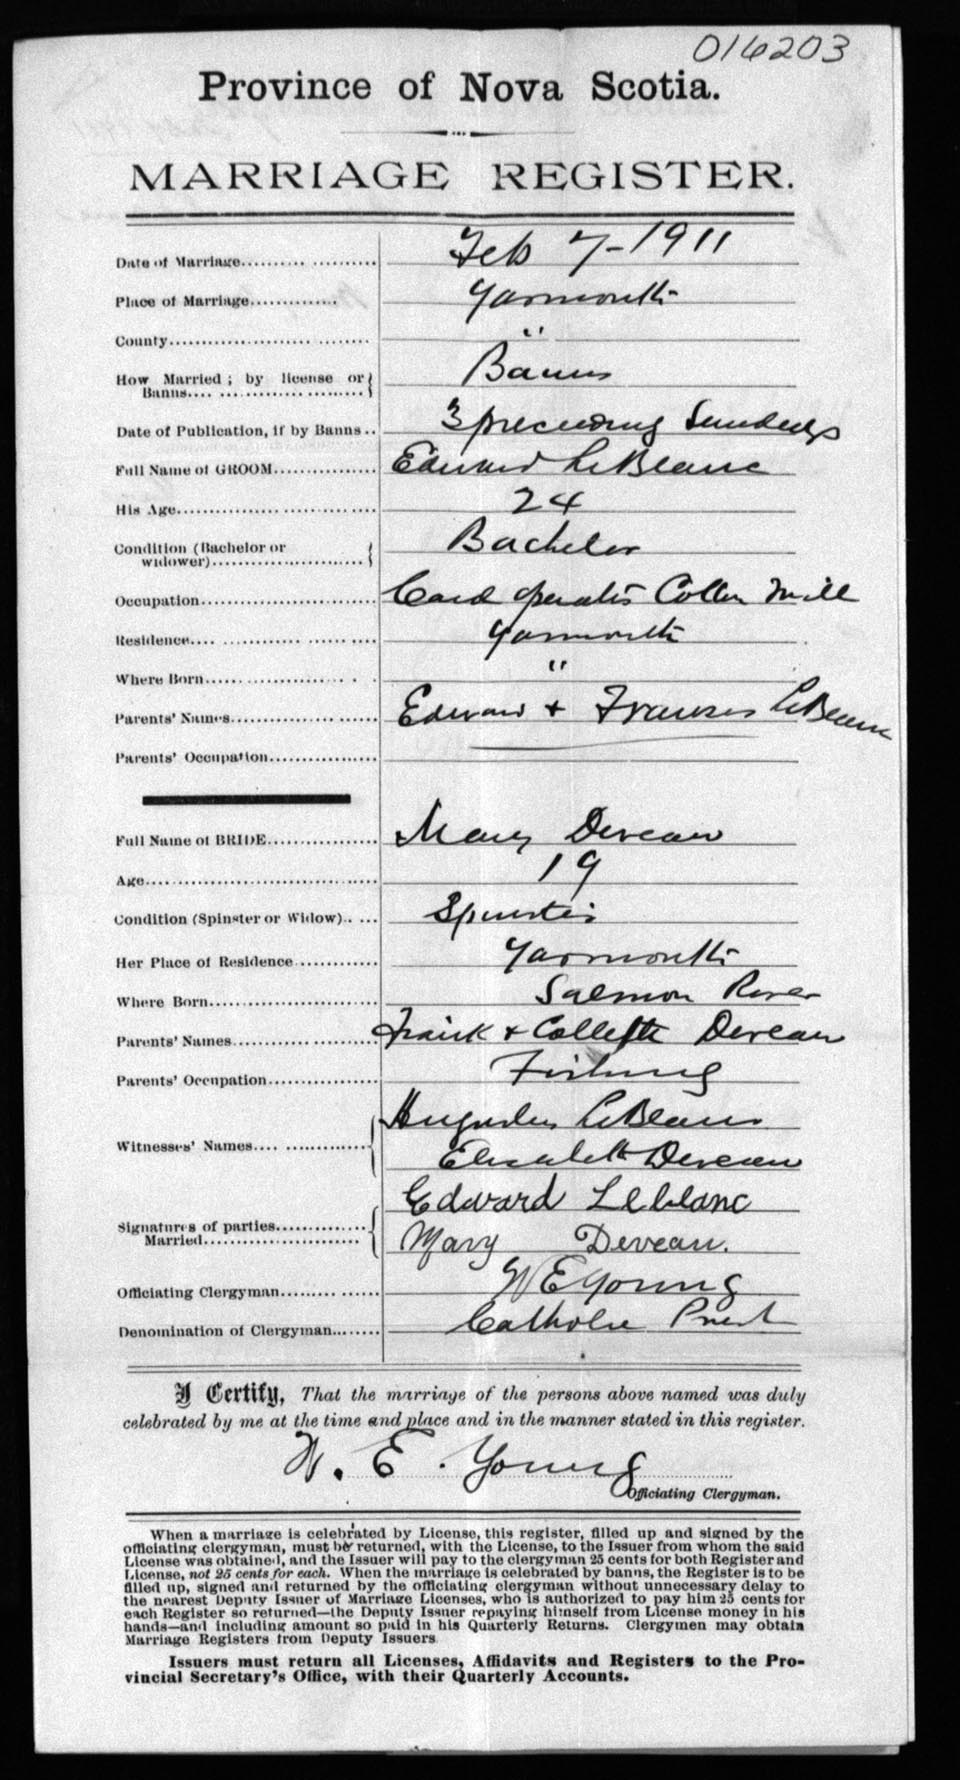 016203
Province of Nova Scotia.
MARRIAGE REGISTER.
Date of Marriage.......... Feb 7-1911
Place of Marriage.......... Yarmouth
County.......... "
How Married; by license or Banns.......... Banns
Date of Publication, if by Banns.. 3 preceeding Sundays
Full Name of GROOM.......... Edward LeBlanc
His Age.......... 24
Condition (Bachelor or widower).......... Bachelor
Occupation.......... Card operator Cotton Mill
Residence.......... Yarmouth
Where Born.......... "
Parents' Names.......... Edward + Frances LeBlanc
Parents' Occupation..........
Full Name of BRIDE.......... Mary Deveau
Age.......... 19
Condition (Spinster or Widow).. .... Spinster
Her Place of Residence.......... Yarmouth
Where Born.......... Salmon River
Parents' Names.......... Frank + Deveau
Parents' Occupation.......... Fishing
Witnesses' Names.......... LeBlanc
Elizabeth Deveau
Signatures of parties Married.......... Edward Leblanc
Mary Deveau.
Officiating Clergyman.......... W E Young
Denomination of Clergyman.......... Catholic Priest
I Certify, That the marriage of the persons above named was duly
celebrated by me at the time and place and in the manner stated in this register.
W. E. Young
Officiating Clergyman.
When a marriage is celebrated by License, this register, filled up and signed by the
officiating clergyman, must be returned, with the License, to the Issuer from whom the said
License was obtained, and the Issuer will pay to the clergyman 25 cents for both Register and
License, not 25 cents for each. When the marriage is celebrated by banns, the Register is to be
filled up, signed and returned by the officiating clergyman without unnecessary delay to
the nearest Deputy Issuer of Marriage Licenses, who is authorized to pay him 25 cents for
each Register so returned—the Deputy Issuer repaying himself from License money in his
hands—and including amount so paid in his Quarterly Returns. Clergymen may obtain
Marriage Registers from Deputy Issuers
Issuers must return all Licenses, Affidavits and Registers to the Pro-
vincial Secretary's Office, with their Quarterly Accounts.